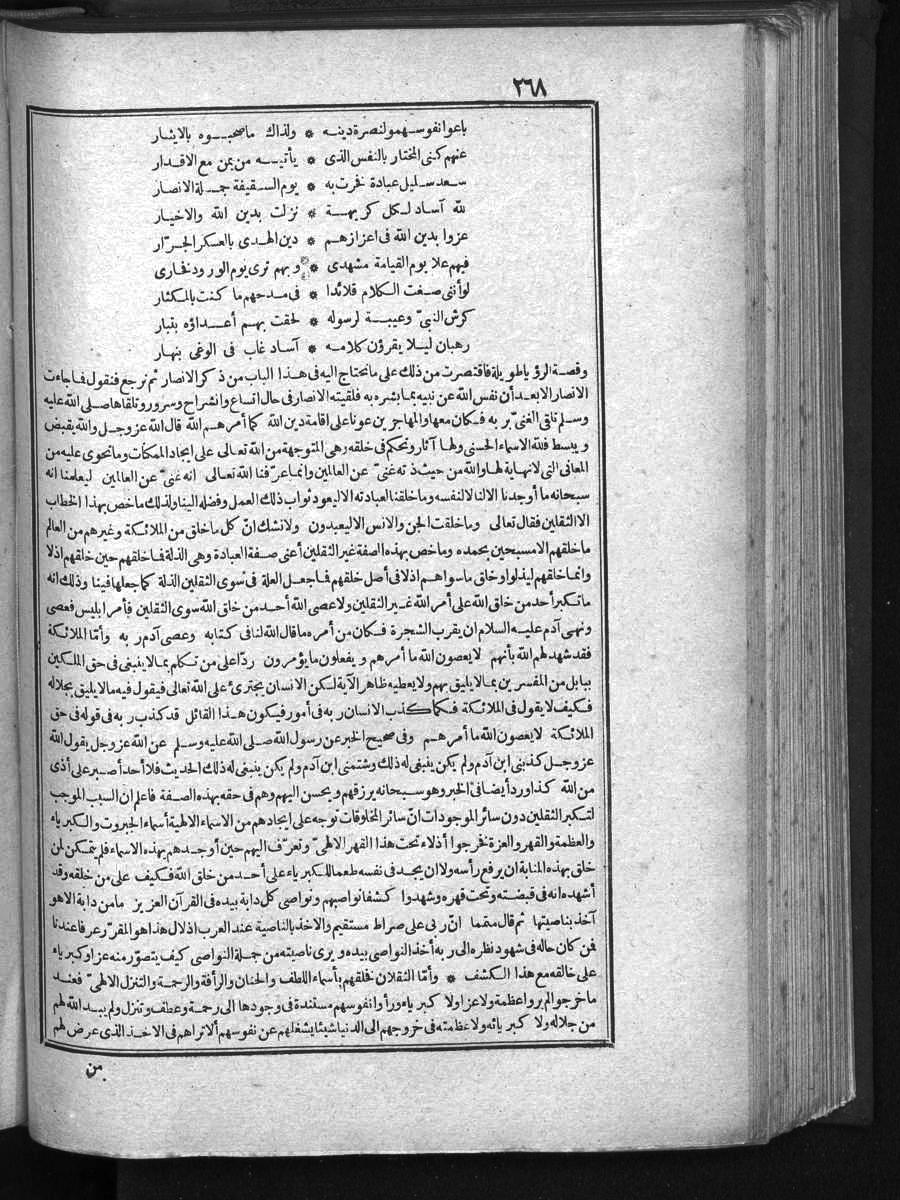 ٢٦٨
باعوا نفوسهمو لنصرة دينه * ولذاك ما صحبوه بالايثار
عنهم كنى المختار بالنفس الذى * يأتيه من يمن مع الاقدار
سعد سليل عبادة فخرت به * يوم السقيفة جملة الانصار
لله آساد لكل كريهة * نزلت بدين الله والاخيار
عزوا بدين الله فى اعزازهم * دين الهدى بالعسكر الجرّار
فيهم علا يوم القيامة مشهدى * وبهم ترى يوم الورود فخارى
لو أننى صغت الكلام قلائدا * فى مدحهم ما كنت بالمكثار
كرش النبىّ وعيبة لرسوله * لحقت بهم أعداؤه بتبار
رهبان ليلا يقرؤن كلامه * آساد غاب فى الوغى بنهار
وقصة الرؤيا طويلة فاقتصرت من ذلك على ما نحتاج اليه فى هذا الباب من ذكر الانصار ثم نرجع فنقول فما جاءت
الانصار الا بعد أن نفس الله عن نبيه بما بشره به فلقيته الانصار فى حال اتساع وانشراح وسرور وتلقاها صلى الله عليه
وسلم تلقى الغنىّ بربه فكان معها والمهاجرين عونا على اقامة دين الله كما أمرهم الله قال الله عز وجل والله يقبض
ويبسط فلله الاسماء الحسنى ولها آثار وتحكم فى خلقه وهى المتوجهة من الله تعالى على ايجاد الممكنات وما تحوى عليه من
المعانى التى لا نهاية لها والله من حيث ذاته غنىّ عن العالمين وانما عرّفنا الله تعالى انه غنىّ عن العالمين ليعلمنا انه
سبحانه ما أوجدنا الا لنا لا لنفسه وما خلقنا لعبادته الا ليعود ثواب ذلك العمل وفضله الينا ولذلك ما خص بهذا الخطاب
الا الثقلين فقال تعالى وما خلقت الجن والانس الا ليعبدون ولا نشك انّ كل ما خلق من الملائكة وغيرهم من العالم
ما خلقهم الا مسبحين بحمده وما خص بهذه الصفة غير الثقلين أعنى صفة العبادة وهى الذلة فما خلقهم حين خلقهم اذلا
وانما خلقهم ليذلوا وخلق ما سواهم اذلا فى أصل خلقهم فما جعل العلة فى سوى الثقلين الذلة كما جعلها فينا وذلك انه
ما تكبر أحد من خلق الله على أمر الله غير الثقلين ولا عصى الله أحد من خلق الله سوى الثقلين فأمر ابليس فعصى
ونهى آدم عليه السلام ان يقرب الشجرة فكان من أمره ما قال الله لنا فى كتابه وعصى آدم ربه وأمّا الملائكة
فقد شهد لهم الله بأنهم لا يعصون الله ما أمرهم ويفعلون ما يؤمرون ردّا على من تكلم بما لا ينبغى فى حق الملكين
ببابل من المفسرين بما لا يليق بهم ولا يعطيه ظاهر الآية لكن الانسان يجترئ على الله تعالى فيقول فيه ما لا يليق بجلاله
فكيف لا يقول فى الملائكة فكما كذب الانسان ربه فى أمور فيكون هذا القائل قد كذب ربه فى قوله فى حق
الملائكة لا يعصون الله ما أمرهم وفى صحيح الخبر عن رسول الله صلى الله عليه وسلم عن الله عز وجل يقول الله
عز وجل كذبنى ابن آدم ولم يكن ينبغى له ذلك وشتمنى ابن آدم ولم يكن ينبغى له ذلك الحديث فلا أحد أصبر على أذى
من الله كذا ورد أيضا فى الخبر وهو سبحانه يرزقهم ويحسن اليهم وهم فى حقه بهذه الصفة فاعلم ان السبب الموجب
لتكبر الثقلين دون سائر الموجودات انّ سائر المخلوقات توجه على ايجادهم من الاسماء الالهية أسماء الجبروت والكبرياء
والعظمة والقهر والعزة نخرجوا أذلاء تحت هذا القهر الالهىّ وتعرّف اليهم حين أوجدهم بهذه الاسماء فلم يتمكن لمن
خلق بهذه المثابة ان يرفع رأسه ولا ان يجد فى نفسه طعما للكبرياء على أحد من خلق الله فكيف على من خلقه وقد
أشهده انه فى قبضته وتحت قهره وشهدوا كشفا نواصيهم ونواصى كل دابة بيده فى القرآن العزيز ما من دابة الا هو
آخذ بناصيتها ثم قال متمما انّ ربى على صراط مستقيم والاخذ بالناصية عند العرب اذلال هذا هو المقرّر عرفا عندنا
فمن كان حاله فى شهود نظره الى ربه أخذ النواصى بيده ويرى ناصيته من جملة النواصى كيف يتصوّر منه عز أو كبرياء
على خالقه مع هذا الكشف * وأمّا الثقلان فخلقهم بأسماء اللطف والحنان والرأفة والرحمة والتنزل الالهىّ فعند
ما خرجوا لم يروا عظمة ولا عزا ولا كبرياء ورأوا نفوسهم مستندة فى وجودها الى رحمة وعطف وتنزل ولم يبد الله لهم
من جلاله ولا كبريائه ولا عظمته فى خروجهم الى الدنيا شيئا يشغلهم عن نفوسهم ألا تراهم فى الاخذ الذى عرض لهم
من